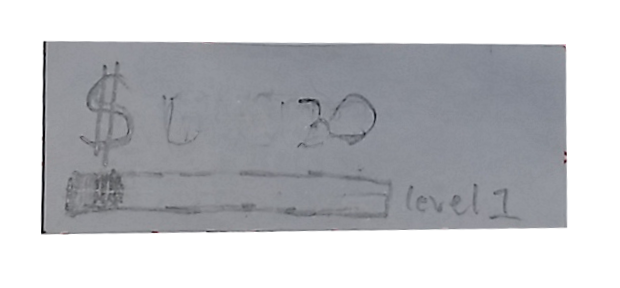 $ 30
level 1